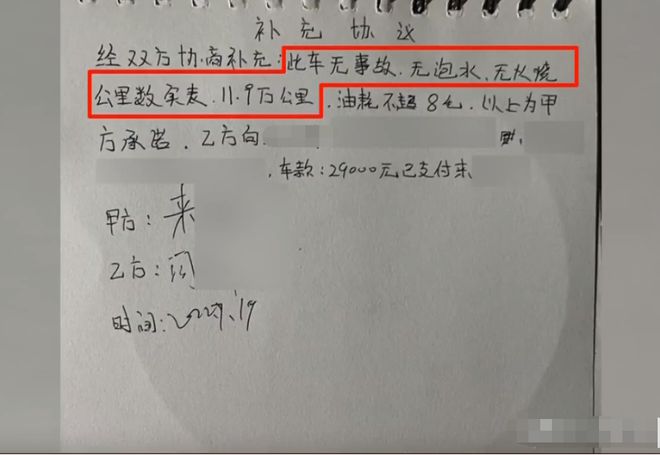 补充协议
经双方协商补充:此车无事故、无泡水、无火烧
公里数实表、11.9万公里、油耗不超8毛、以上为甲
方承诺、乙方向
,车款:29000元已支付来
甲方:来
乙方:闫
时间: